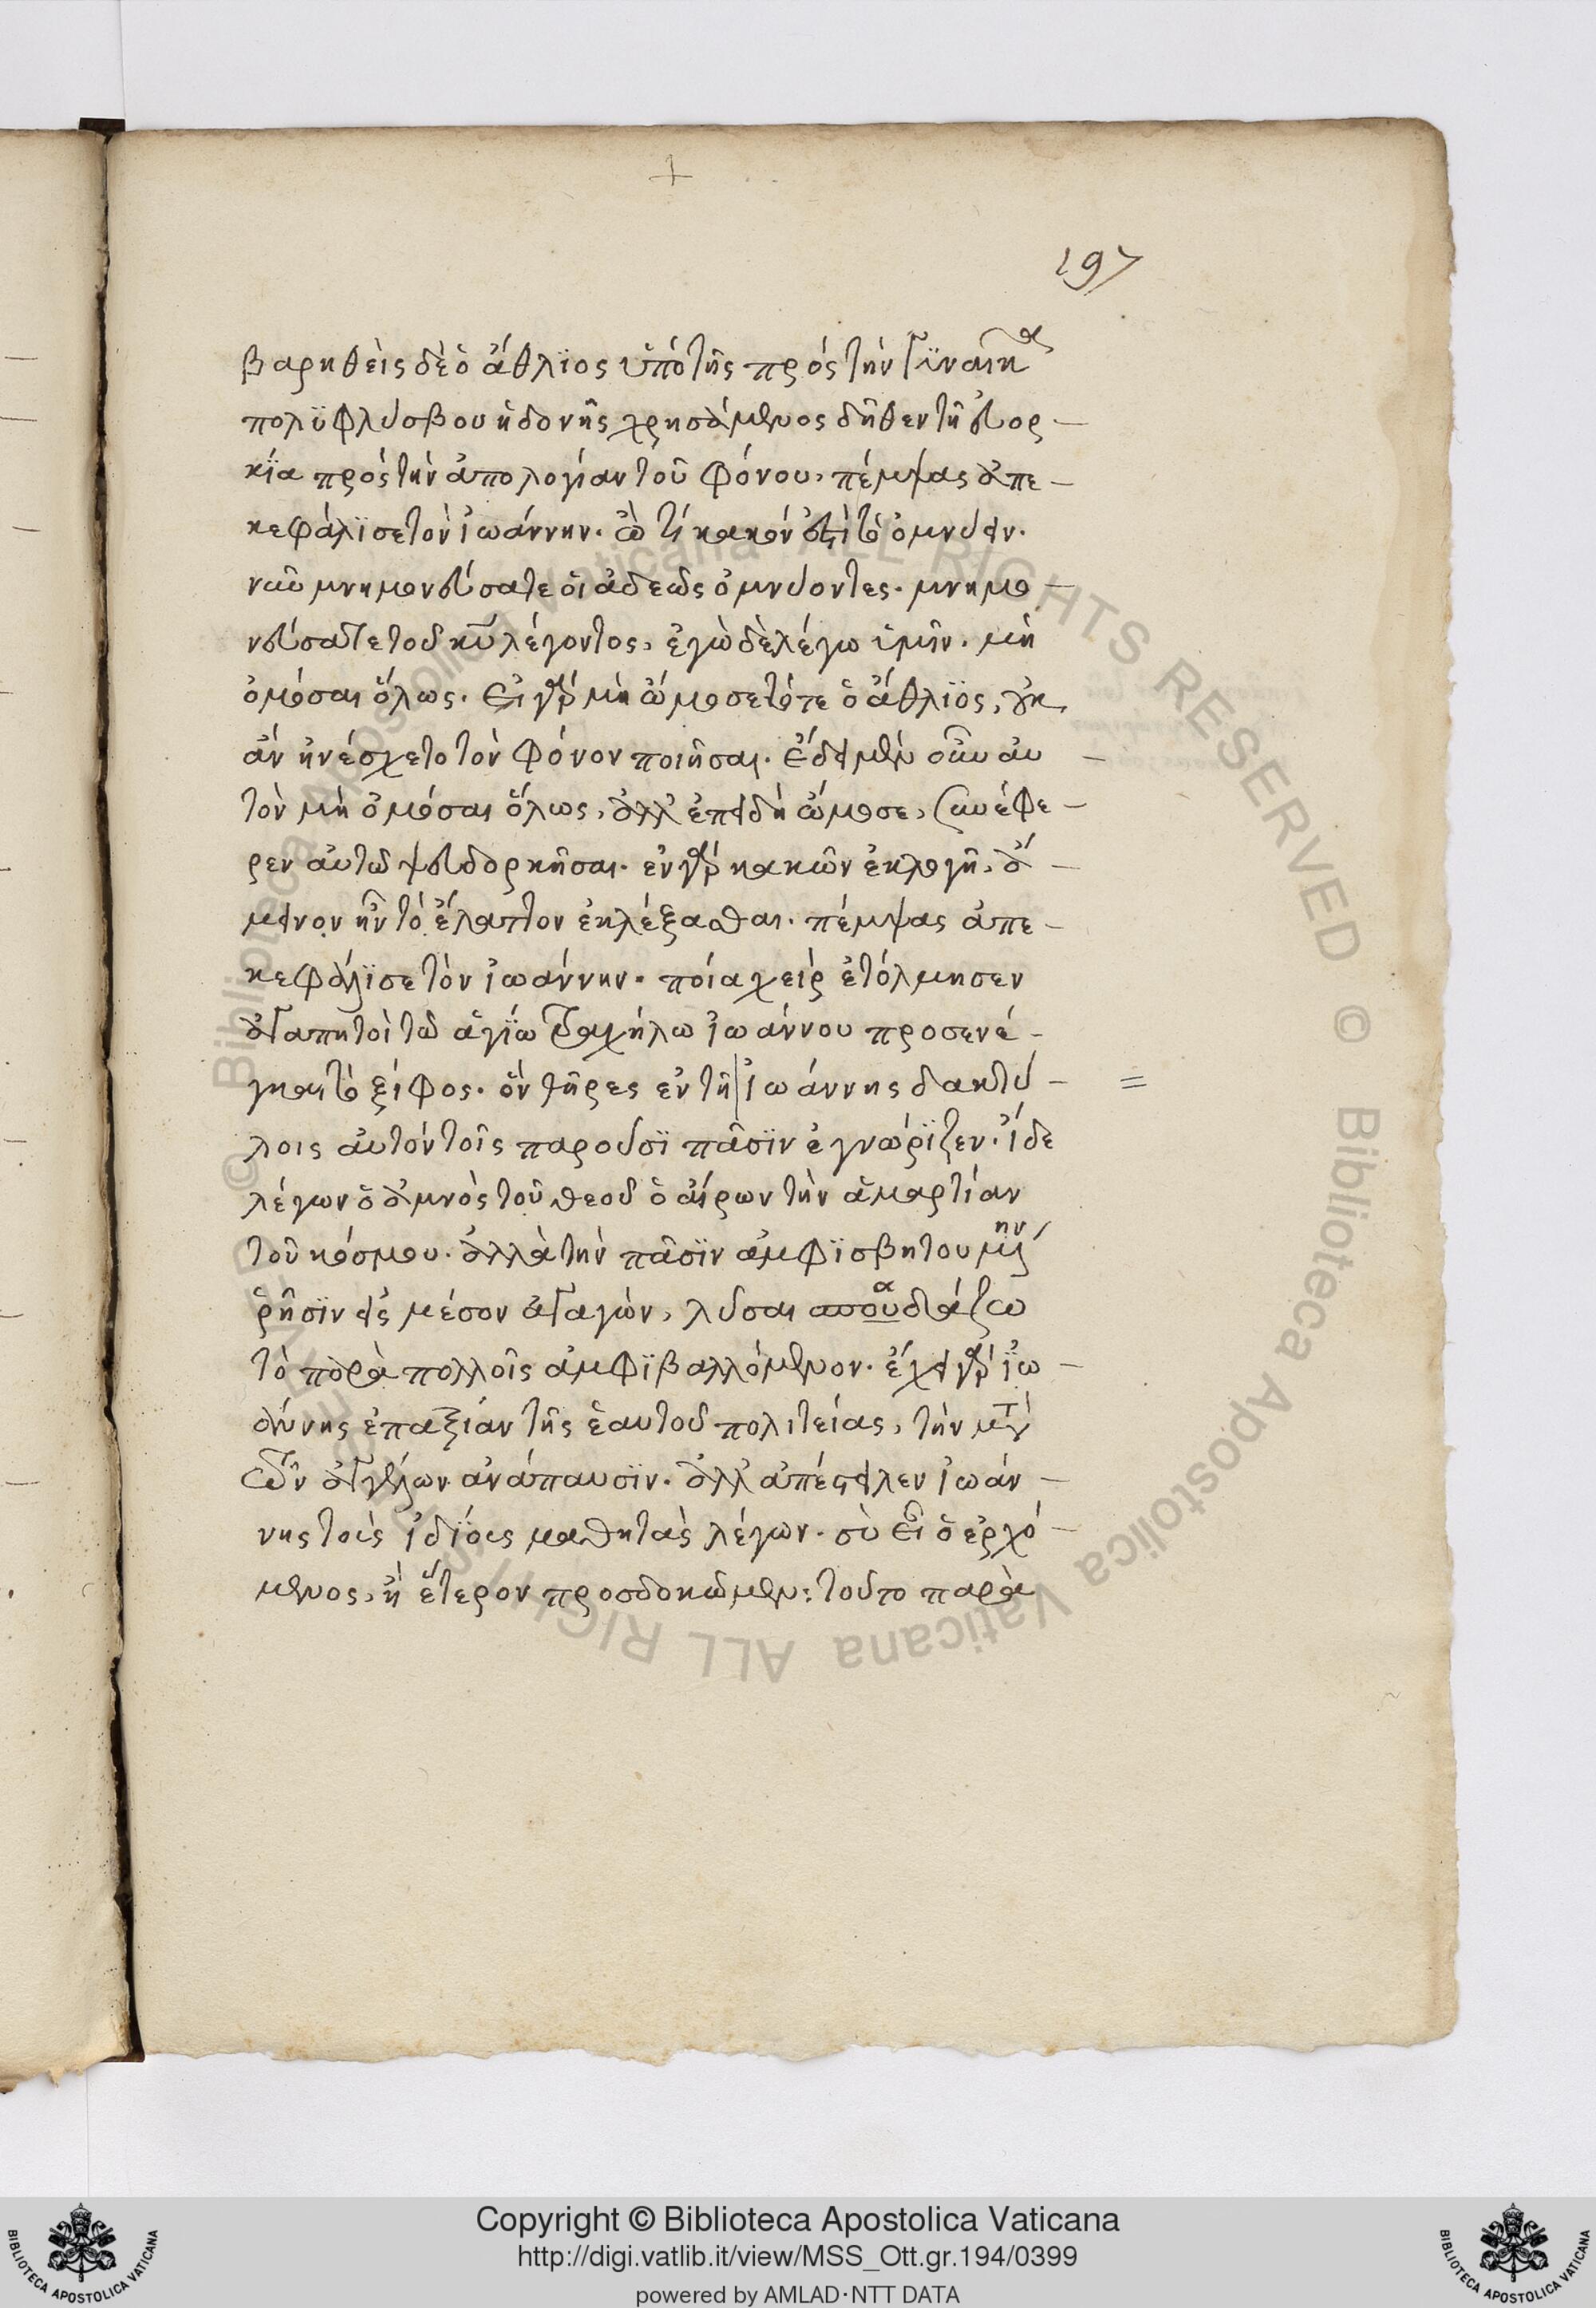 197
βαρηθεὶς δὲ ὁ ἄθλϊος ὑπὸ τῆς πρὸς τὴν γϋναῖκα
πολϋφλύσβου ἡδονῆς χρησάμενος δῆθεν τῆ εὐορ-
κΐα πρὸς τὴν ἀπολογίαν τοῦ φόνου, πέμψας ἀπε-
κεφάλϊσε τὸν ἰωάννην. ὢ τί κακόν ἐστὶ τὸ ὀμνύειν.
ναὶ μνημονεύσατε οἱ ἀδεῶς ὀμνύοντες. μνημο-
νεύσατε τοῦ κυ λέγοντος, ἐγὼ δὲ λέγω ὑμῖν. μὴ
ὀμόσαι ὅλως. εἰ γὰρ μὴ ὤμοσε τότε ὁ ἄθλϊος, οὐκ
ἀν ἠνέσχετο τὸν φόνον ποιῆσαι. ἔδει μὲν οὖν αυ
τὸν μὴ ὀμόσαι ὅλως, ἀλλ' ἐπειδὴ ὤμοσε, συνέφε-
ρεν αὐτῶ ψευδορκῆσαι. ἐν γὰρ κακῶν ἐκλογῆ, ἄ-
μεινον ἦν τὸ ἔλαττον ἐκλέξασθαι. πέμψας ἀπε-
κεφάλϊσε τὸν ἰωάννην. ποία χεὶρ ἐτόλμησεν
ἀγαπητοὶ τῶ ἁγΐω τραχήλω ἰωάννου προσενέ-
γκαι τὸ ξίφος. ὃν τῆρες ἐν τῆ ἰωάννης δακτύ-
λοις αὐτὸν τοῖς παροῦσϊ πᾶσϊν ἐγνώρϊζεν. ἴδε
λέγων ὁ ἀμνὸς τοῦ θεοῦ ὁ αἴρων τὴν ἁμαρτίαν
τοῦ κόσμου. ἀλλὰ τὴν πᾶσϊν ἀμφϊσβητουμένην
ῥῆσϊν εἰς μέσον ἀγαγὼν, λῦσαι σπουδάζω
τὸ παρὰ πολλοῖς ἀμφϊβαλλόμενον. ἔχει γὰρ ἰω-
άννης ἐπαξίαν τῆς ἑαυτοῦ πολιτείας, τὴν μετὰ
τῶν ἀγγέλων ἀνάπαυσϊν. ἀλλ' ἀπέστειλεν ἰωάν-
νης τοὶς ἰδΐοις μαθητὰς λέγων. σὺ εἶ ὁ ἐρχό-
μενος, ἢ ἕτερον προσδοκῶμεν; τοῦτο παρὰ
© Biblioteca Apostolica Vaticana ALL RIGHTS RESERVED
Copyright © Biblioteca Apostolica Vaticana
http://digi.vatlib.it/view/MSS_Ott.gr.194/0399
powered by AMLAD·NTT DATA
BIBLIOTECA APOSTOLICA VATICANA
BIBLIOTECA APOSTOLICA VATICANA